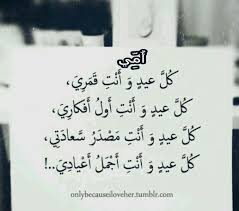 أمّي
كُلَّ عيدٍ وَ أَنْتِ قَمَرِيَ،
كُلَّ عيدٍ وَ أَنْتِ أَولُ أَفكارِي،
كُلَّ عيدٍ وَ أَنْتِ مَصْدَرُ سَعادَتِي،
كُلَّ عيدٍ وَ أَنْتِ أَجْمَلُ أَعْيادِيَ..!
onlybecauseiloveher.tumblr.com